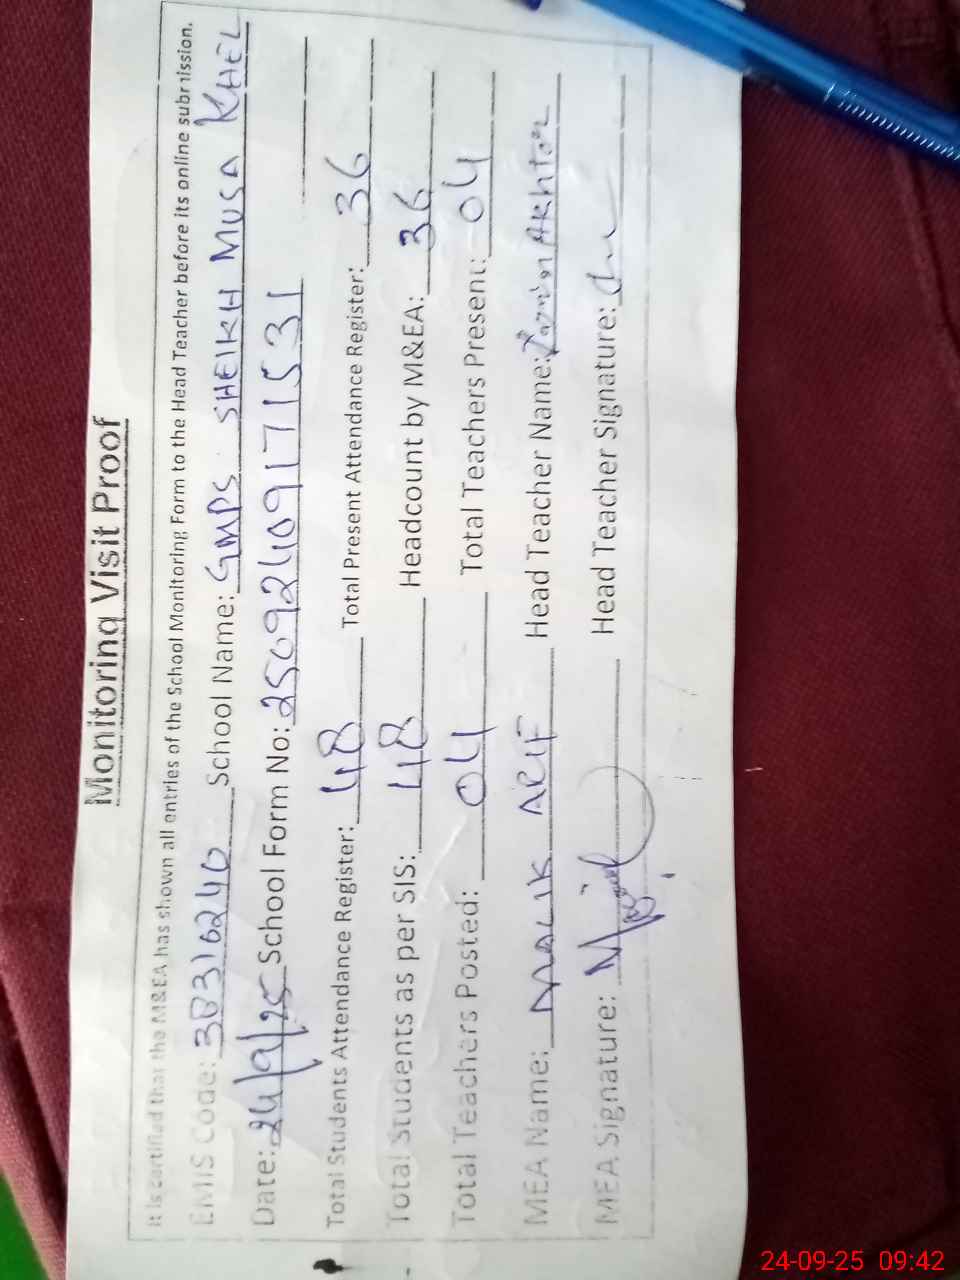 Monitoring Visit Proof
It is certified that the M&EA has shown all entries of the School Monitoring Form to the Head Teacher before its online submission.
EMIS Code: 38316240 School Name: GMPS SHEIKH MUSA KHEL
Date: 24/9/25 School Form No: 25092409171531
Total Students Attendance Register: 48 Total Present Attendance Register: 36
Total Students as per SIS: 48 Headcount by M&EA: 36
Total Teachers Posted: 04 Total Teachers Present: 04
MEA Name: MALIK ARIF Head Teacher Name: Akhtar
MEA Signature: Head Teacher Signature:
24-09-25 09:42